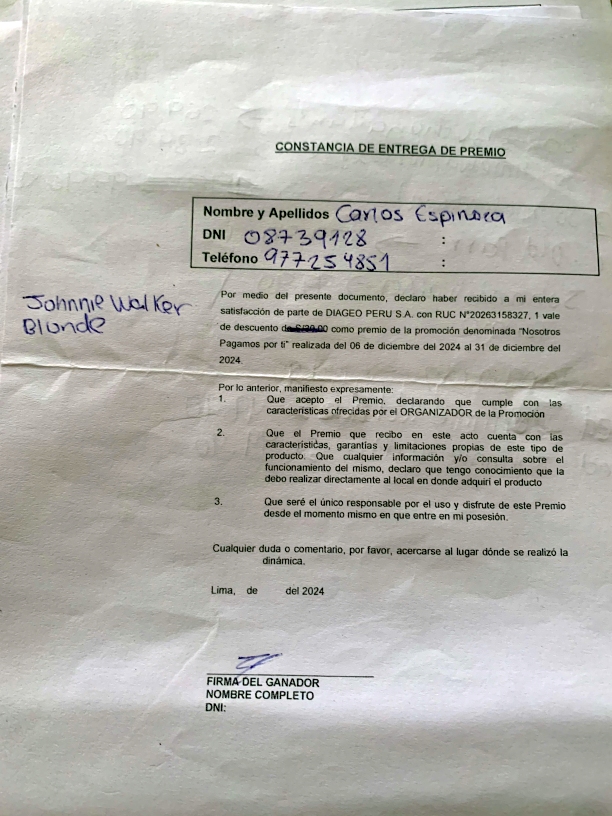 CONSTANCIA DE ENTREGA DE PREMIO
Nombre y Apellidos Carlos Espinoza
DNI 08739128 :
Teléfono 977254851 :
Johnnie Walker
Blonde
Por medio del presente documento, declaro haber recibido a mi entera
satisfacción de parte de DIAGEO PERU S.A. con RUC N°20263158327, 1 vale
de descuento como premio de la promoción denominada "Nosotros
Pagamos por ti" realizada del 06 de diciembre del 2024 al 31 de diciembre del
2024.
Por lo anterior, manifiesto expresamente:
1. Que acepto el Premio, declarando que cumple con las
características ofrecidas por el ORGANIZADOR de la Promoción
2. Que el Premio que recibo en este acto cuenta con las
características, garantías y limitaciones propias de este tipo de
producto. Que cualquier información y/o consulta sobre el
funcionamiento del mismo, declaro que tengo conocimiento que la
debo realizar directamente al local en donde adquirí el producto
3. Que seré el único responsable por el uso y disfrute de este Premio
desde el momento mismo en que entre en mi posesión.
Cualquier duda o comentario, por favor, acercarse al lugar dónde se realizó la
dinámica.
Lima, de del 2024
FIRMA DEL GANADOR
NOMBRE COMPLETO
DNI: